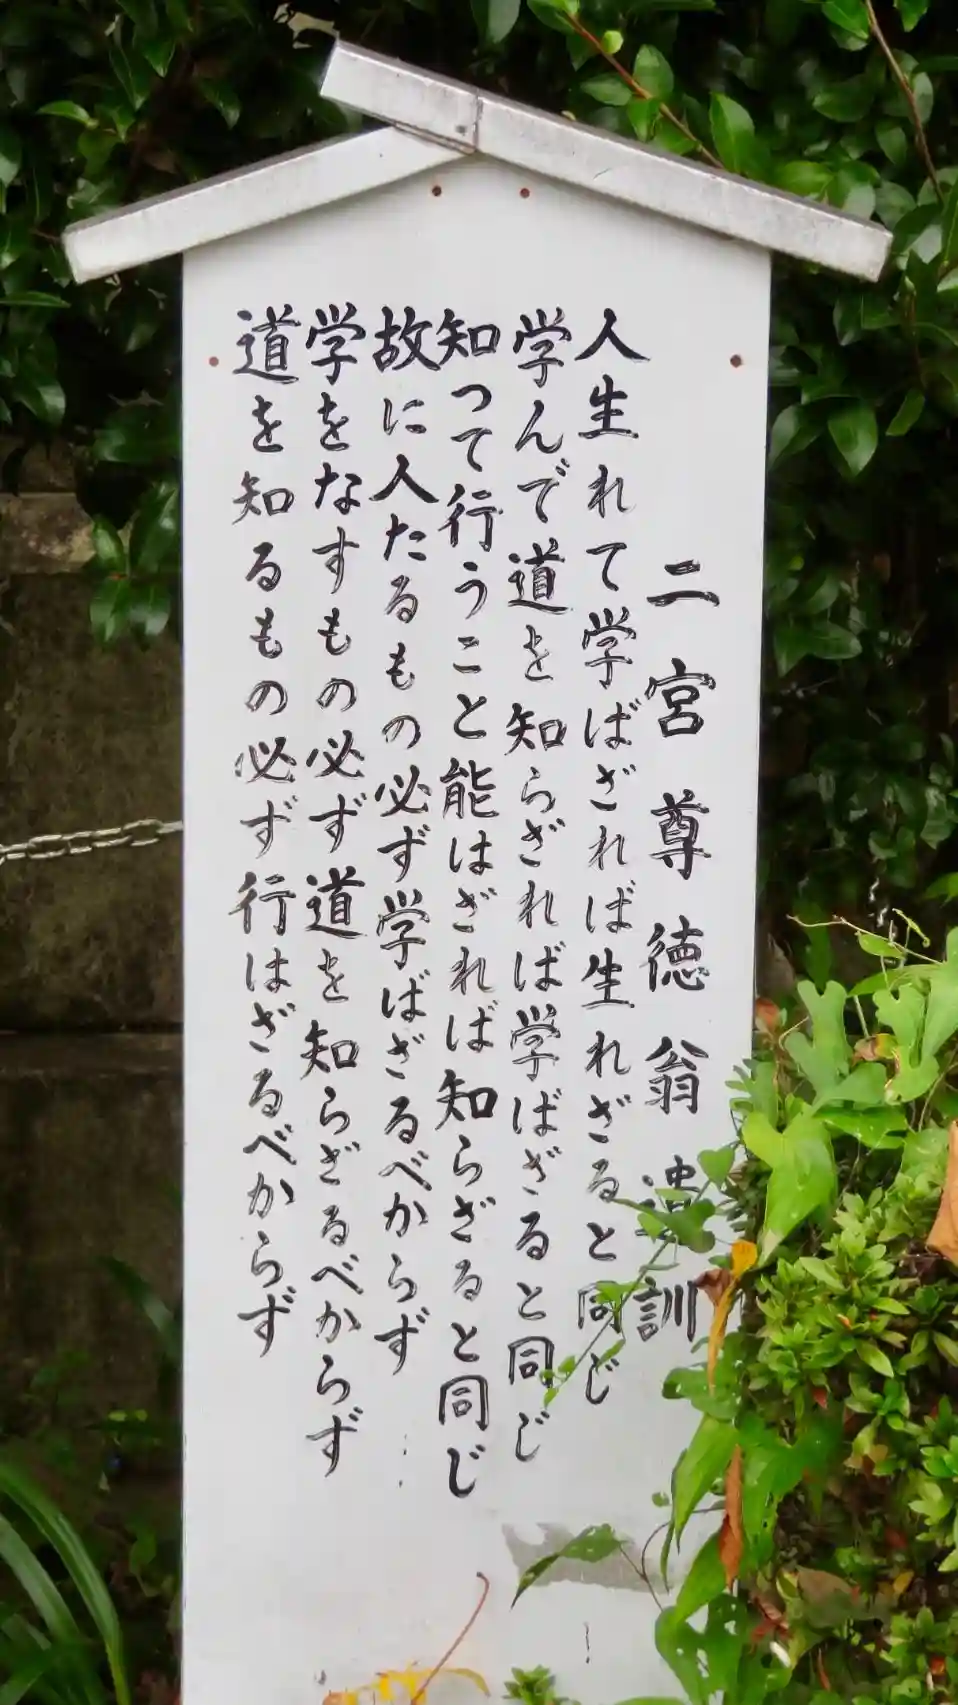 二宮尊徳翁遺訓
人生れて学ばざれば生れざると同じ
学んで道を知らざれば学ばざると同じ
知つて行うこと能はざれば知らざると同じ
故に人たるもの必ず学ばざるべからず
学をなすもの必ず道を知らざるべからず
道を知るもの必ず行はざるべからず